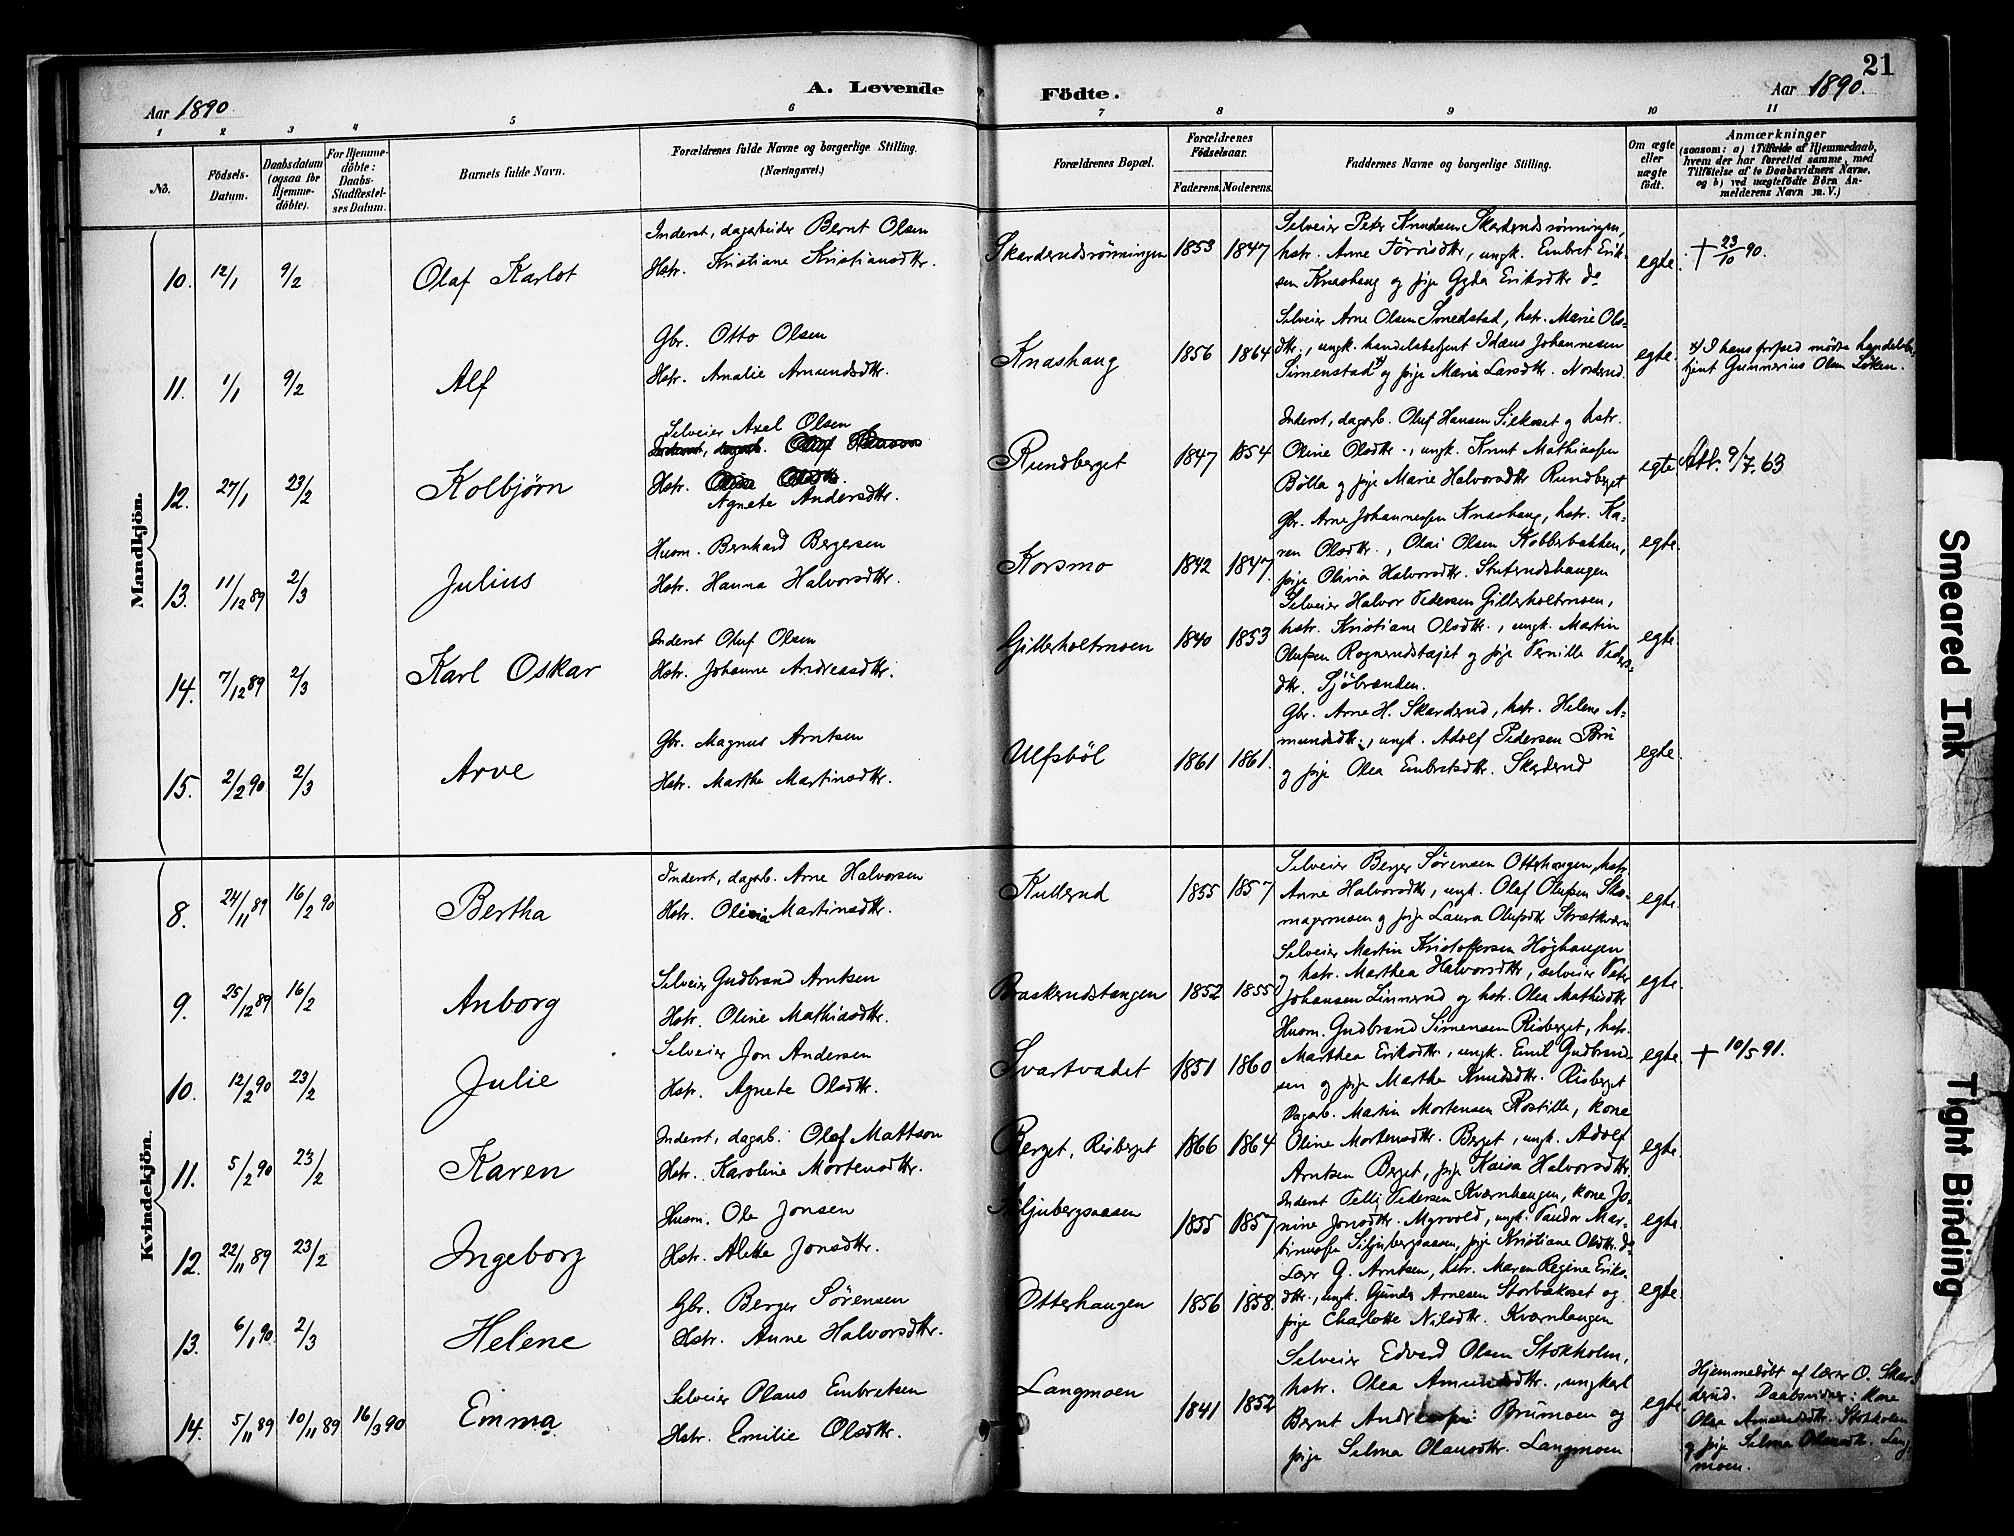 21
A. Levende Födte.
Aar 1890.
Aar 1890.
1 2 3 4 5 6 7 8 9 10 11
No.
Födsels-Datum.
Daabsdatum (ogsaa for Hjemme-döbte).
For Hjemme-döbte: Daabs-Stadfæstel-ses Datum.
Barnets fulde Navn.
Forældrenes fulde Navne og borgerlige Stilling. (Næringsvei.)
Forældrenes Bopæl.
Forældrenes Födselsaar.
Faderens. Moderens.
Faddernes Navne og borgerlige Stilling.
Om ægte eller uægte födt.
Anmærkninger
(saasom: a) i Tilfælde af Hjemmedaab,
hvem der har forrettet samme, med
Tilföielse af to Daabsvidners Navne,
og b) ved uægtefödte Börn An-
melderens Navn m. V.)
Mandkjön.
10. 12/1 9/2 Olaf Karlot
Inderst, dagarbeider Bernt Olsen
Hstr. Kristiane Kristiansdtr.
Skarderudsrönningen 1853 1847
Selveier Peter Knudsen Skarderudsrönningen,
hstr. Anne Törrisdtr, ungk. Embret Erik-
sen Knashaug og pige Gyda Eriksdtr do
egte.
† 23/10 90.
11. 1/1 9/2 Alf
Gbr. Otto Olsen
Hstr. Amalie Amundsdtr.
Knashaug 1856 1864
Selveier Arne Olsen Smedstad, hstr. Marie Ols-
dtr., ungk. handelsbetjent Idæus Johannesen
Simenstad x) og pige Marie Larsdtr. Norderud.
egte.
x) I hans frafæd mödte handelsbe-
tjent Gunnerius Olsen Löken.
12. 27/1 23/2 Kolbjörn
Selveier Axel Olsen
Inderst, dagarb. Oluf Hansen
Hstr. Oline Olsdtr.
Agnete Andersdtr.
Rundberget 1847 1854
Inderst, dagarb. Oluf Hansen Silkoset og hstr.
Oline Olsdtr., ungk. Knut Mathiassen
Bölla og pige Marie Halvorsdtr Rundberget
egte
Att. 9/7. 63
13. 11/12 89 2/3 Julius
Husm. Bernhard Bergersen
Hstr. Hanna Halvorsdtr.
Korsmo 1842 1847.
Gbr. Arne Johannessen Knashaug, hstr. Ka-
ren Olsdtr., Olai Olsen Kobberbakken,
pige Olivia Halvorsdtr. Stuterudshaugen
egte.
14. 7/12 89 2/3 Karl Oskar
Inderst Oluf Olsen
Hstr. Johanne Andreasdtr.
Gillerholtmoen 1840 1853
Selveier Halvor Pedersen Gillerholtmoen,
hstr. Kristiane Olsdtr., ungk. Martin
Olufsen Rognerudstajet og pige Pernille Peders-
dtr. Sjöbranden.
egte.
15. 2/2 90 2/3 Arve
Gbr. Magnus Arntsen
Hstr. Marthe Martinsdtr.
Ulfsböl 1861 1861.
Gbr. Arne H. Skarderud, hstr. Helene A-
mundsdtr., ungk. Adolf Pedersen Bru
og pige Olea Embretsdtr. Skarderud
egte.
Kvindekjön.
8. 24/11 89 16/2 90 Bertha
Inderst, dagarb. Arne Halvorsen
Hstr. Olivia Martinsdtr.
Kullerud 1855 1857
Selveier Berger Sörensen Otterhaugen, hstr.
Anne Halvorsdtr, ungk. Olaf Olufsen Sko-
magermoen og pige Laura Olufsdtr Strætkværn
egte.
9. 25/12 89 16/2 Anborg
Selveier Gudbrand Arntsen
Hstr. Oline Mathiasdtr.
Braskerudstangen 1852 1855
Selveier Martin Kristoffersen Höghaugen
og hstr. Marthea Halvorsdtr, selveier Peter
Johansen Linnerud og hstr. Olea Mathisdtr
egte.
10. 12/2 90 23/2 Julie
Selveier Jon Andersen
Hstr. Agnete Olsdtr.
Svartvadet 1851 1860
Husm. Gudbrand Simensen Risberget, hstr.
Marthea Eriksdtr., ungk. Emil Gudbrand-
sen og pige Marthe Knudsdtr. Risberget
egte.
† 10/5 91.
11. 5/2 90 23/2 Karen
Inderst, dagarb. Olaf Mattson
Hstr. Karoline Mortensdtr.
Berget, Risberget 1866 1864
Dagarb. Martin Mortensen Rostille, kone
Oline Mortensdtr. Berget, ungk. Adolf
Arntsen Berget, pige Kaisa Halvorsdtr.
egte.
12. 22/11 89 23/2 Ingeborg
Husm. Ole Jonsen
Hstr. Alette Jonsdtr.
Siljubergsaasen 1855 1857
Inderst Pelle Pedersen Kværnhaugen, kone Jo-
nine Jonsdtr. Myrvold, ungk. Peder Mar-
tinusen Siljubergsaasen, pige Kristiane Olsdtr. do
egte.
13. 6/1 90 2/3 Helene
Gbr. Berger Sörensen
Hstr. Anne Halvorsdtr.
Otterhaugen 1856 1858.
Lærer G. Arntsen, hstr. Maren Regine Eriks-
dtr., ungk. Gunder Arnesen Storbækoset og
pige Charlotte Nilsdtr. Kværnhaugen
egte.
14. 5/11 89 10/11 89 16/3 90 Emma
Selveier Olaus Embretsen
Hstr. Emilie Olsdtr.
Langmoen 1841 1852
Selveier Edvard Olsen Stokholm,
hstr. Olea Amundsdtr., ungkarl
Bernt Andreassen Brumoen og
pige Selma Olausdtr. Langmoen
egte.
Hjemmedöbt af lærer O. Skar-
derud. Daabsvidner: kone
Olea Amundsdtr. Stokholm
og pige Selma Olausdtr. Lang-
moen.
Smeared Ink
Tight Binding